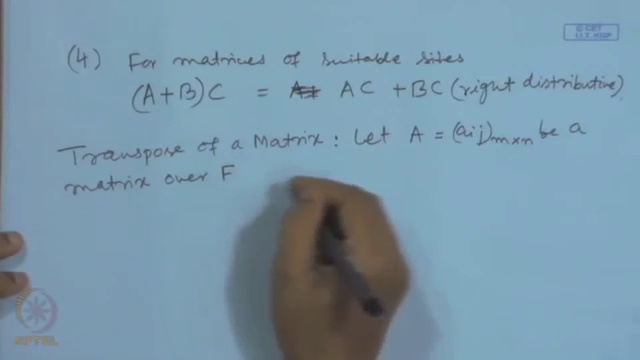 © CET
I.I.T. KGP
(4) For matrices of suitable sites
(A+B)C = AC + BC (right distributive)
Transpose of a Matrix : Let A = (aij)m×n be a
matrix over F
NPTEL